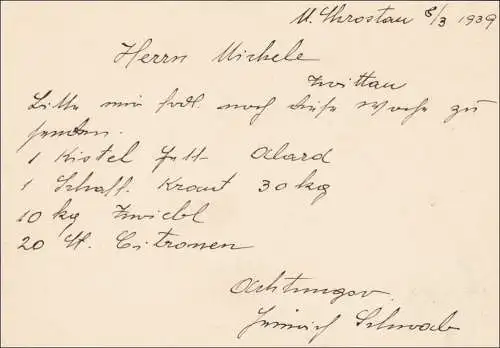 M. Chrostau 8/3 1939
Herrn Michele
Zwittau
Bitte mir frdl. noch diese Woche zu
senden.
1 Kistel Fett Alard
1 Schaff. Kraut 30 kg
10 kg Zwiebl
20 St. Citronen
Achtungsv.
Heinrich Schwab